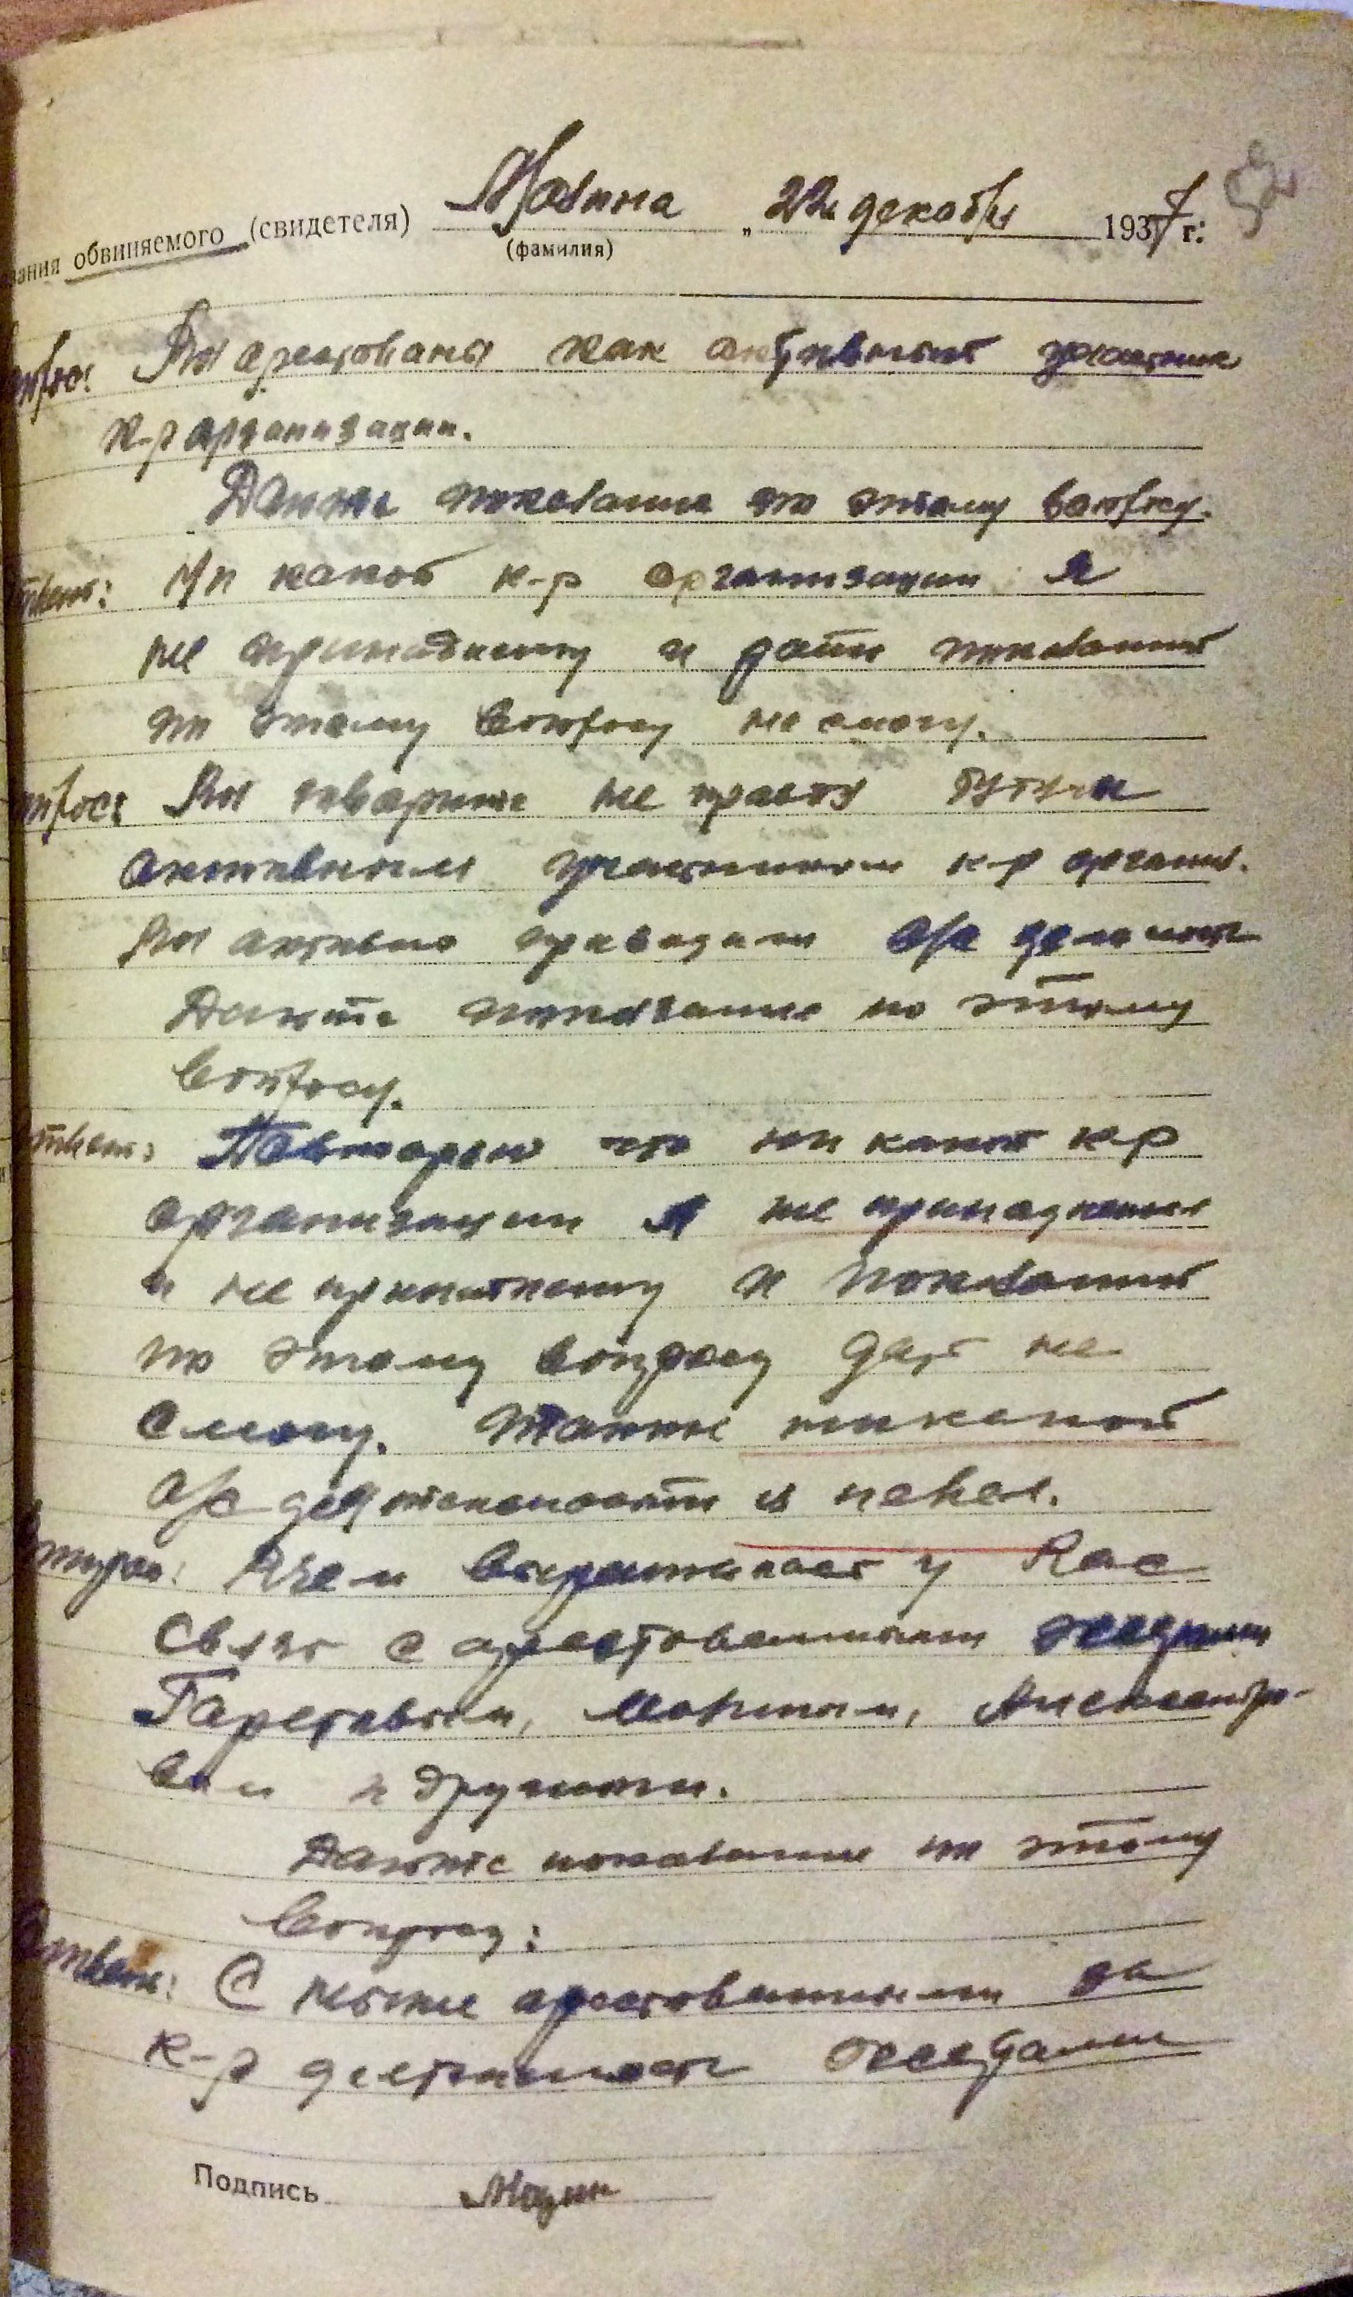 вания обвиняемого (свидетеля) 22 декабря 1937 г.
(фамилия)
Вы арестованы как активный участник
к-р организации.
Дайте показание по этому вопросу.
Ни какой к-р организации я
не принадлежу и дать показаний
по этому вопросу не смогу.
Вы говорите не правду будучи
активным участником к-р организ.
Вы активно проводили а/с
Дайте показание по этому
вопросу.
Повторяю что ни какой к-р
организации я не принадлежал
и не принадлежу и показаний
по этому вопросу дать не
смогу. Также никакой
а/с деятельности я не вел.
Вопрос: В чем выражалась у Вас
связь с арестованными эсерами
Александро-
вым и другими.
Дайте показание по этому
вопросу:
Ответ: С ныне арестованными за
к-р деятельность эсерами
Подпись